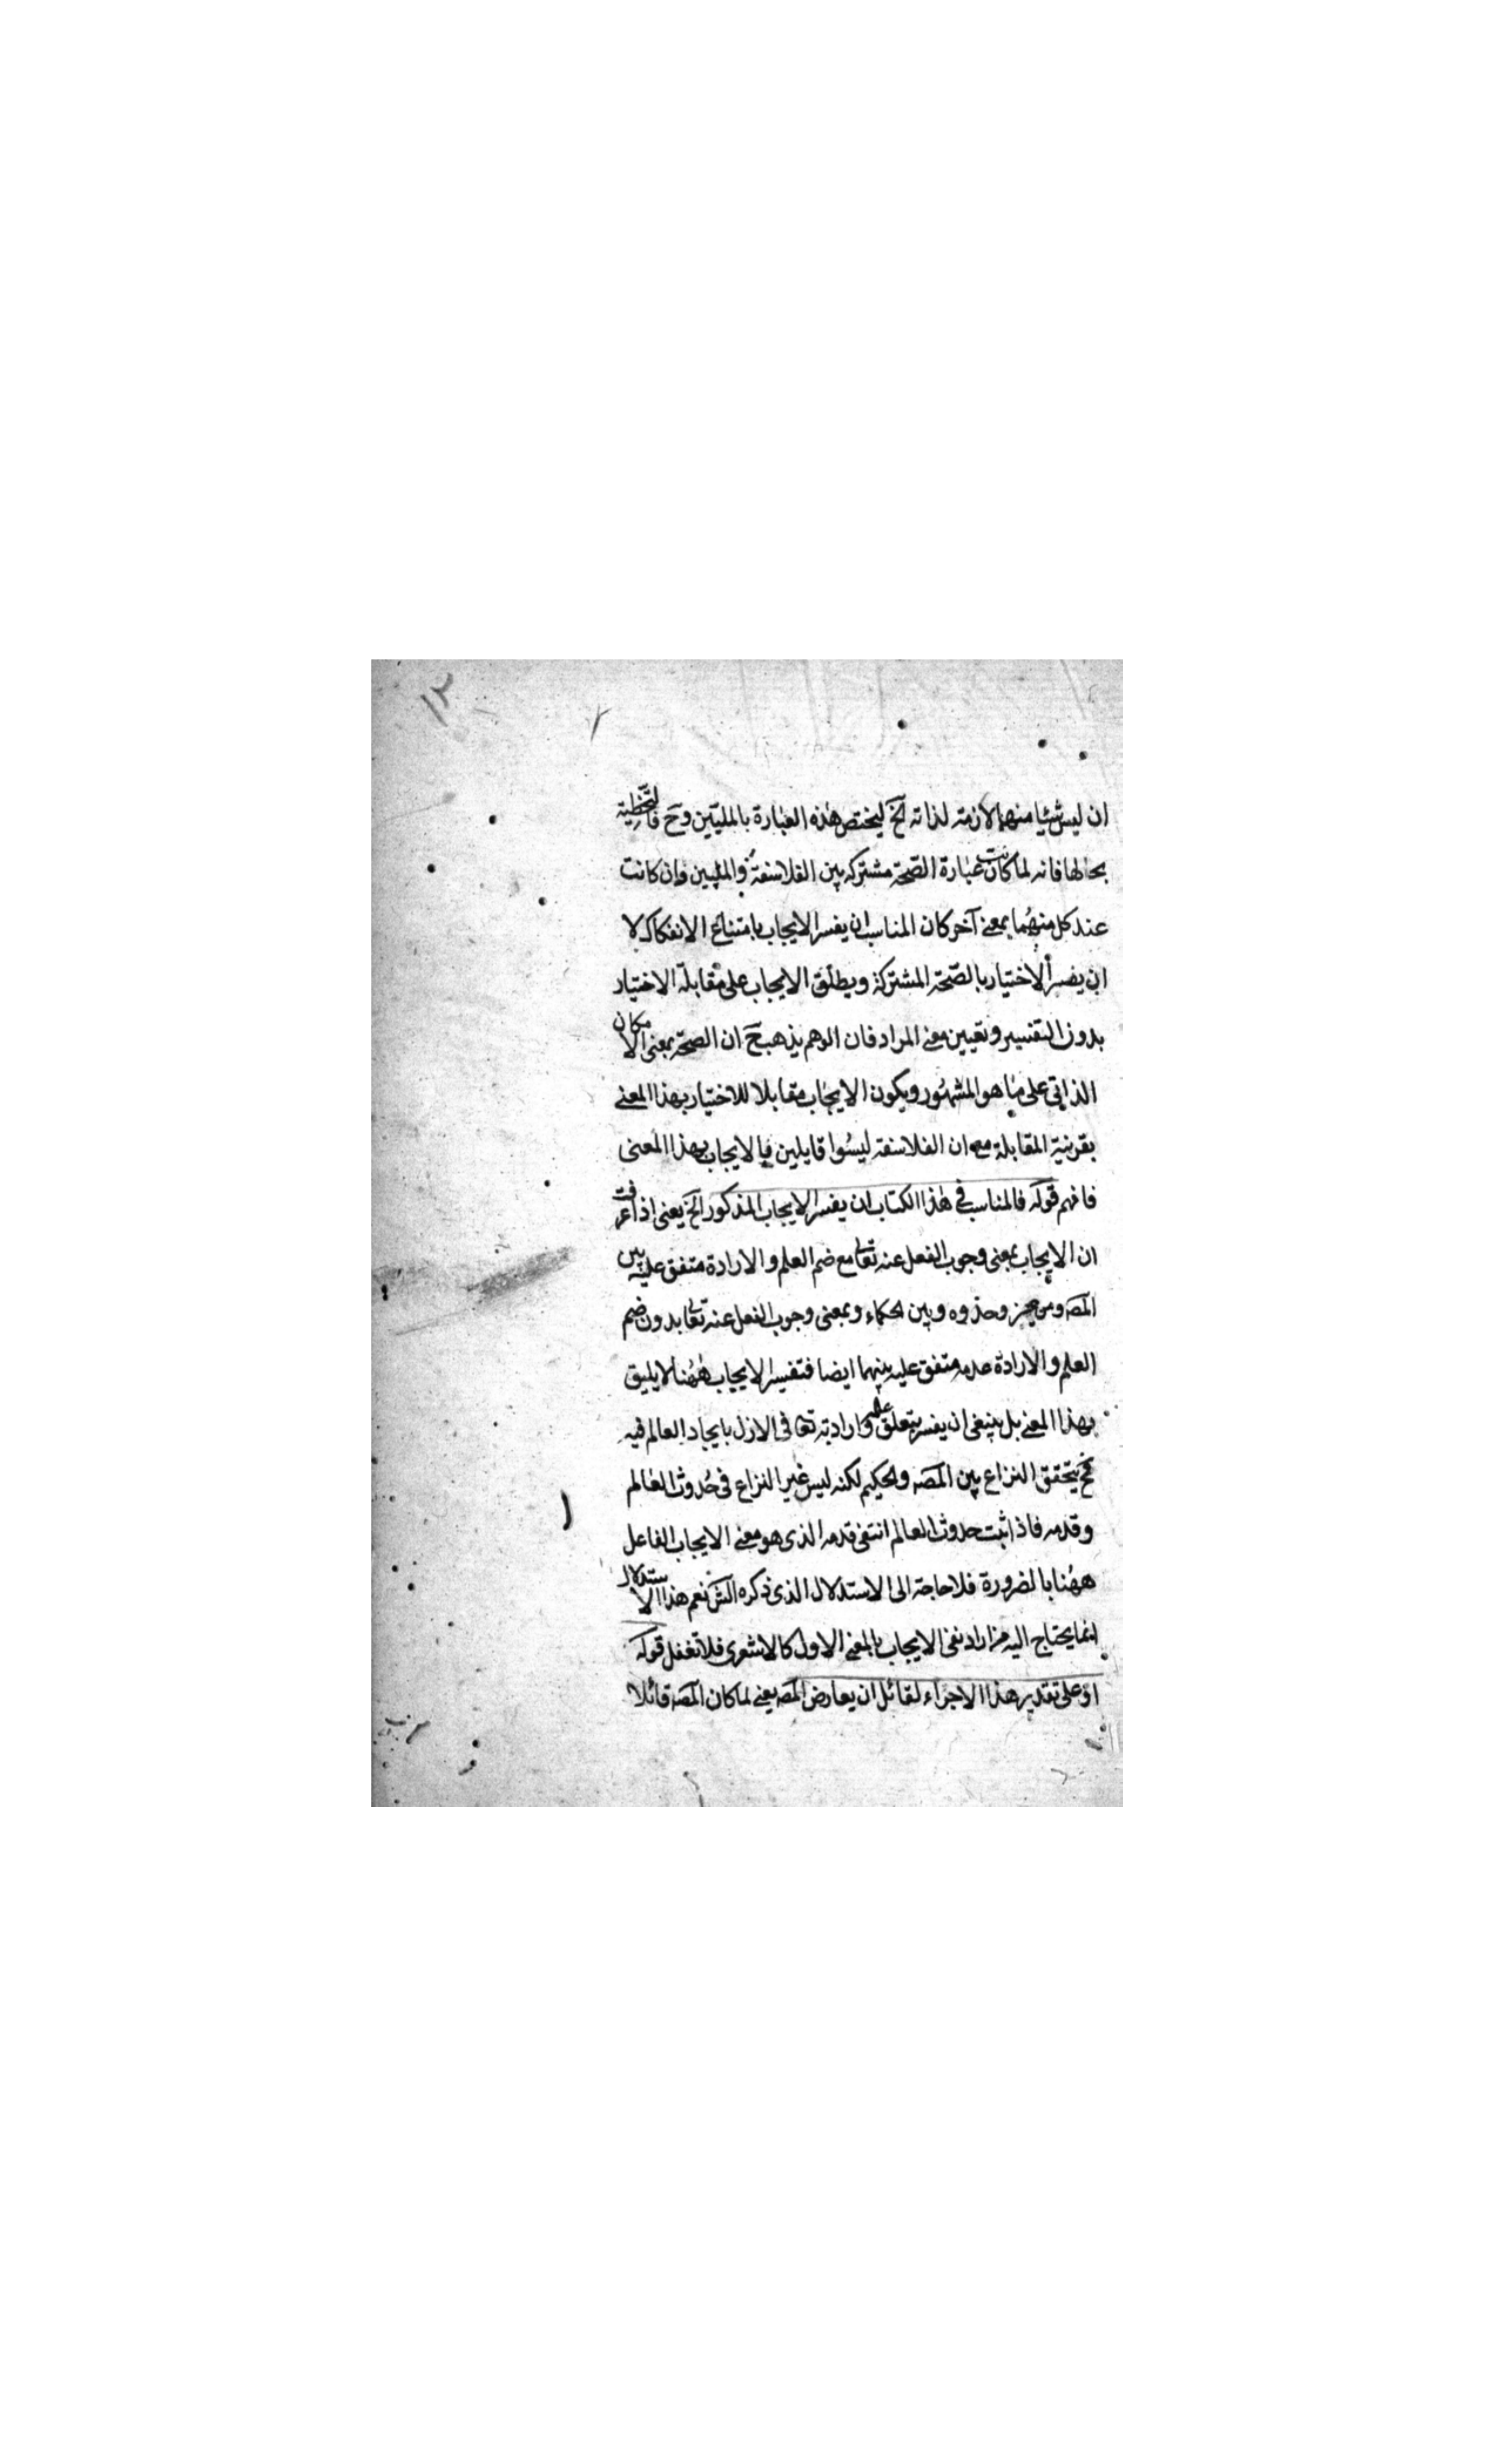 ١٢
ان ليس شيئا منهما لازمة لذاته الخ ليختص هذه العبارة بالمليين وح فالتخطية
بحالها فانه لما كانت عبارة الصحة مشتركة بين الفلاسفة والمليين وان كانت
عند كل منهما بمعنى آخر كان المناسب ان يفسر الايجاب بامتناع الانفكاك لا
ان يفسر الاختيار بالصحة المشتركة ويطلق الايجاب على مقابلة الاختيار
بدون التفسير وتعيين معنى المراد فان الوهم يذهب ح ان الصحة بمعنى الامكان
الذاتي على ما هو المشهور ويكون الايجاب مقابلا للاختيار بهذا المعنى
بقرينة المقابلة مع ان الفلاسفة ليسوا قايلين بالايجاب بهذا المعنى
فافهم قوله فالمناسب في هذا الكتاب ان يفسر الايجاب المذكور الخ يعني اذا عرفت
ان الايجاب بمعنى وجوب الفعل عنه تعالى مع ضم العلم والارادة متفق عليه بين
المص ومن حذوه وبين الحكماء وبمعنى وجوب الفعل عنه تعالى بدون ضم
العلم والارادة عدمه متفق عليه بينهما ايضا فتفسير الايجاب ههنا لا يليق
بهذا المعنى بل ينبغي ان يفسر بتعلق علمه وارادته تعا في الازل بايجاد العالم فيه
فح يتحقق النزاع بين المص والحكيم لكنه ليس غير النزاع في حدوث العالم
وقدمه فاذا ثبت حدوث العالم انتفى قدمه الذي هو معنى الايجاب الفاعل
ههنا بالضرورة فلا حاجة الى الاستدلال الذى ذكره الش نعم هذا الاستدلال
انما يحتاج اليه من اراد نفى الايجاب بالمعنى الاول كالاشعرى فلا تغفل قوله
او على تقدير هذا الاجراء لقائل ان يعارض المص يعني لما كان المص قائلا